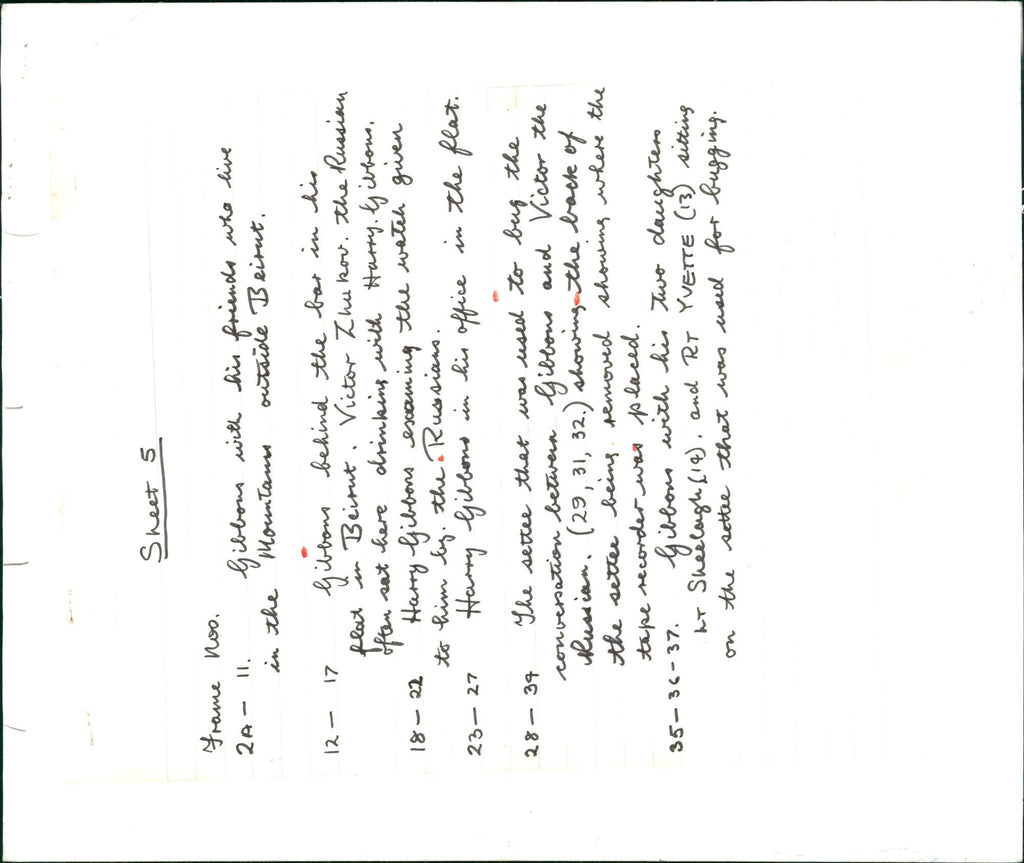 Sheet 5
Frame Nos.
2A - 11. Gibbons with his friends who live
in the Mountains outside Beirut.
12 - 17 Gibbons behind the bar in his
flat in Beirut. Victor Zhukov. the Russian
often sat here drinking with Harry. Gibbons.
18 - 22 Harry Gibbons examing the watch given
to him by. the Russians.
23 - 27 Harry Gibbons in his office in the flat.
28 - 34 The settee that was used to bug the
conversation between Gibbons and Victor the
Russian. (29, 31, 32.) showing the back of
the settee being removed showing where the
tape recorder was placed.
35 - 36 - 37. Gibbons with his two daughters
LT Sheeleagh, (14). and RT YVETTE (13) sitting
on the settee that was used for bugging.